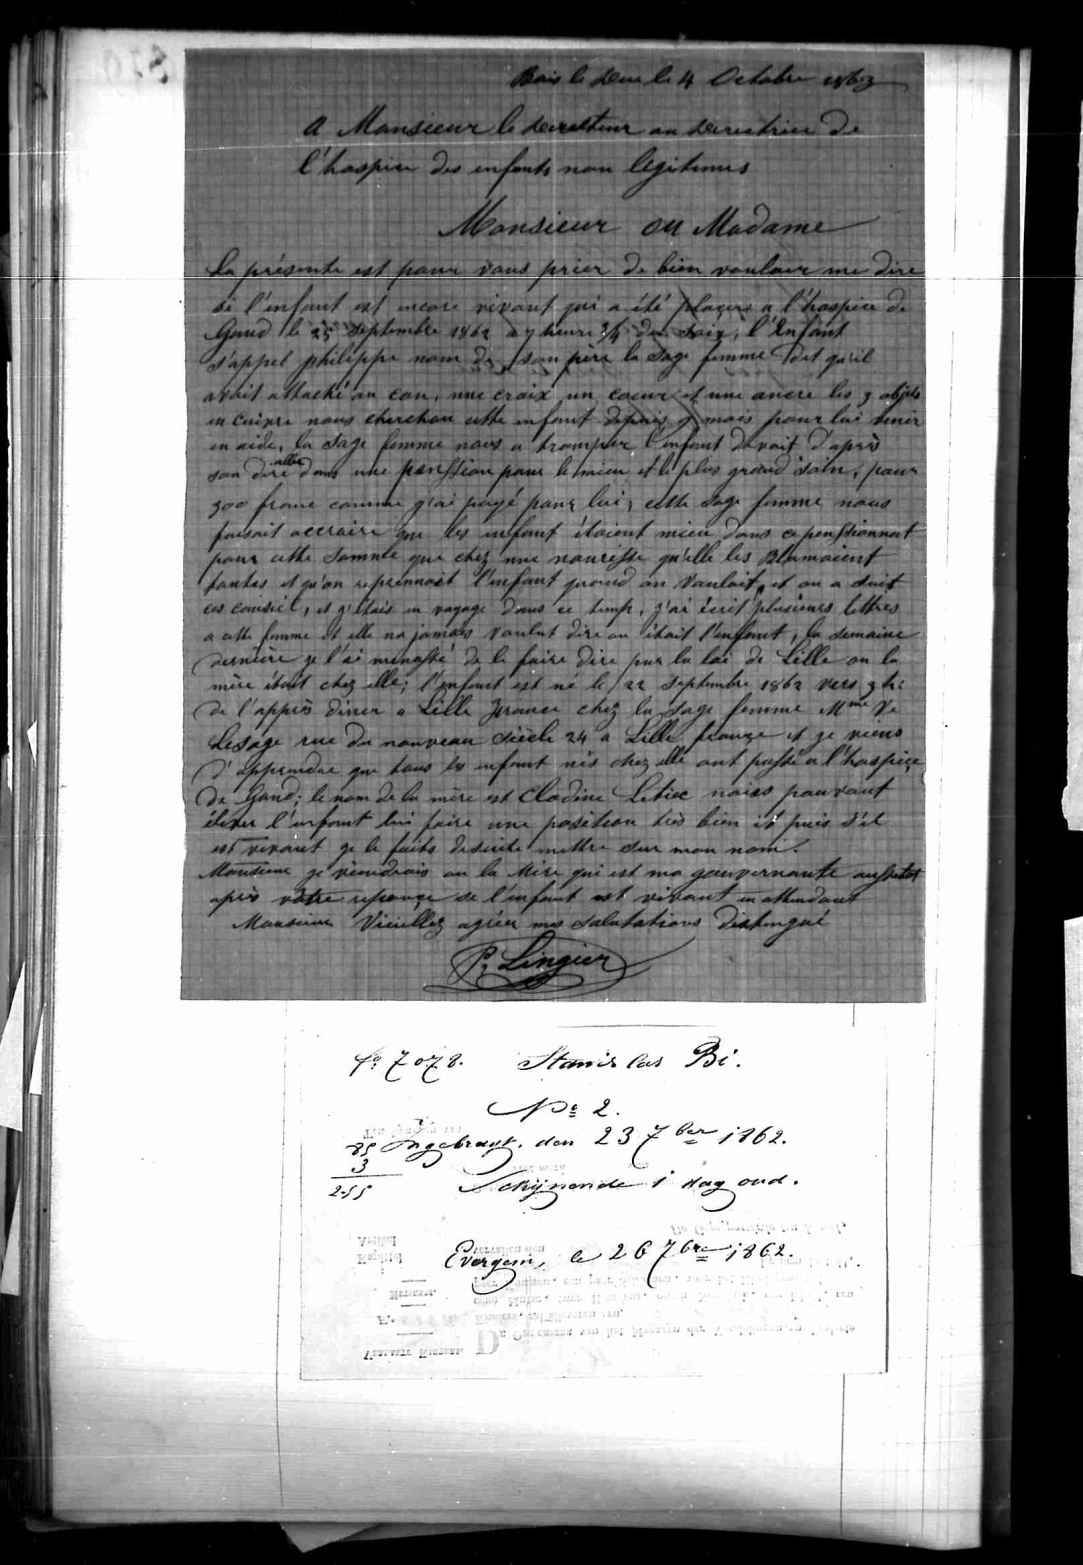 Bois le Duc le 4 Octobre 1863
A Monsieur le directeur ou directrice de
l'hospice des enfants non légitimes
Monsieur ou Madame
La présente est pour vous prier de bien vouloir me dire
si l'enfant est encore vivant qui a été plaçers a l'hospice de
Gand le 25 Septembre 1862 a 7 heure 3/4 du Soir, l'Enfant
s'appel philippe nom de son père la Sage femme dit qu'il
avait attaché au cou, une croix un cœur et une ancre les 3 objets
en cuivre nous cherchon cette enfant depuis mois pour lui venir
en aide, la Sage femme nous a tromper l'enfant devait d'après
son dire aller dans une panssion pour le mieu et le plus grand soin, pour
300 franc comme j'ai payé pour lui, cette Sage femme nous
faisait accroire que les enfant étaient mieu dans ce penssionnat
pour cette Somme que chez une nourisse qu'elle les Blamaient
toutes et qu'on reprennait l'enfant quand on voulait, et on a suit
ces conseil, et j'étais en voyage dans ce temps, j'ai écrit plusieurs lettres
a cette femme et elle na jamais voulut dire ou était l'enfant, la semaine
dernière je l'ai menassé de le faire dire par la loi de Lille ou la
mère était chez elle; l'enfant est né le 22 Septembre 1862 vers 3 h:
de l'apprès diner a Lille france chez la Sage femme Mme Ve
Lesage rue du nouveau Siècle 24 a Lille france et je viens
d'apprendre que tous les enfant nés chez elle ont passé a l'hospice
de Gand; le nom de la mère est Clodine nous pouvont
élever l'enfant lui faire une position très bien et puis s'il
est vivant je le faits desuite mettre sur mon nom.
Monsieur je viendrais ou la Mère qui est ma gouvernante aussitot
après vôtre reponse se l'enfant est vivant en attendant
Monsieur Vieillez agréer mes salutations distingué
P. Lingier
fo 7078. Stanislas Bi.
No 2.
Ingebragt den 23 7ber 1862.
85
3
255
Schijnende 1 dag oud.
Evergem, le 26 7bre 1862.